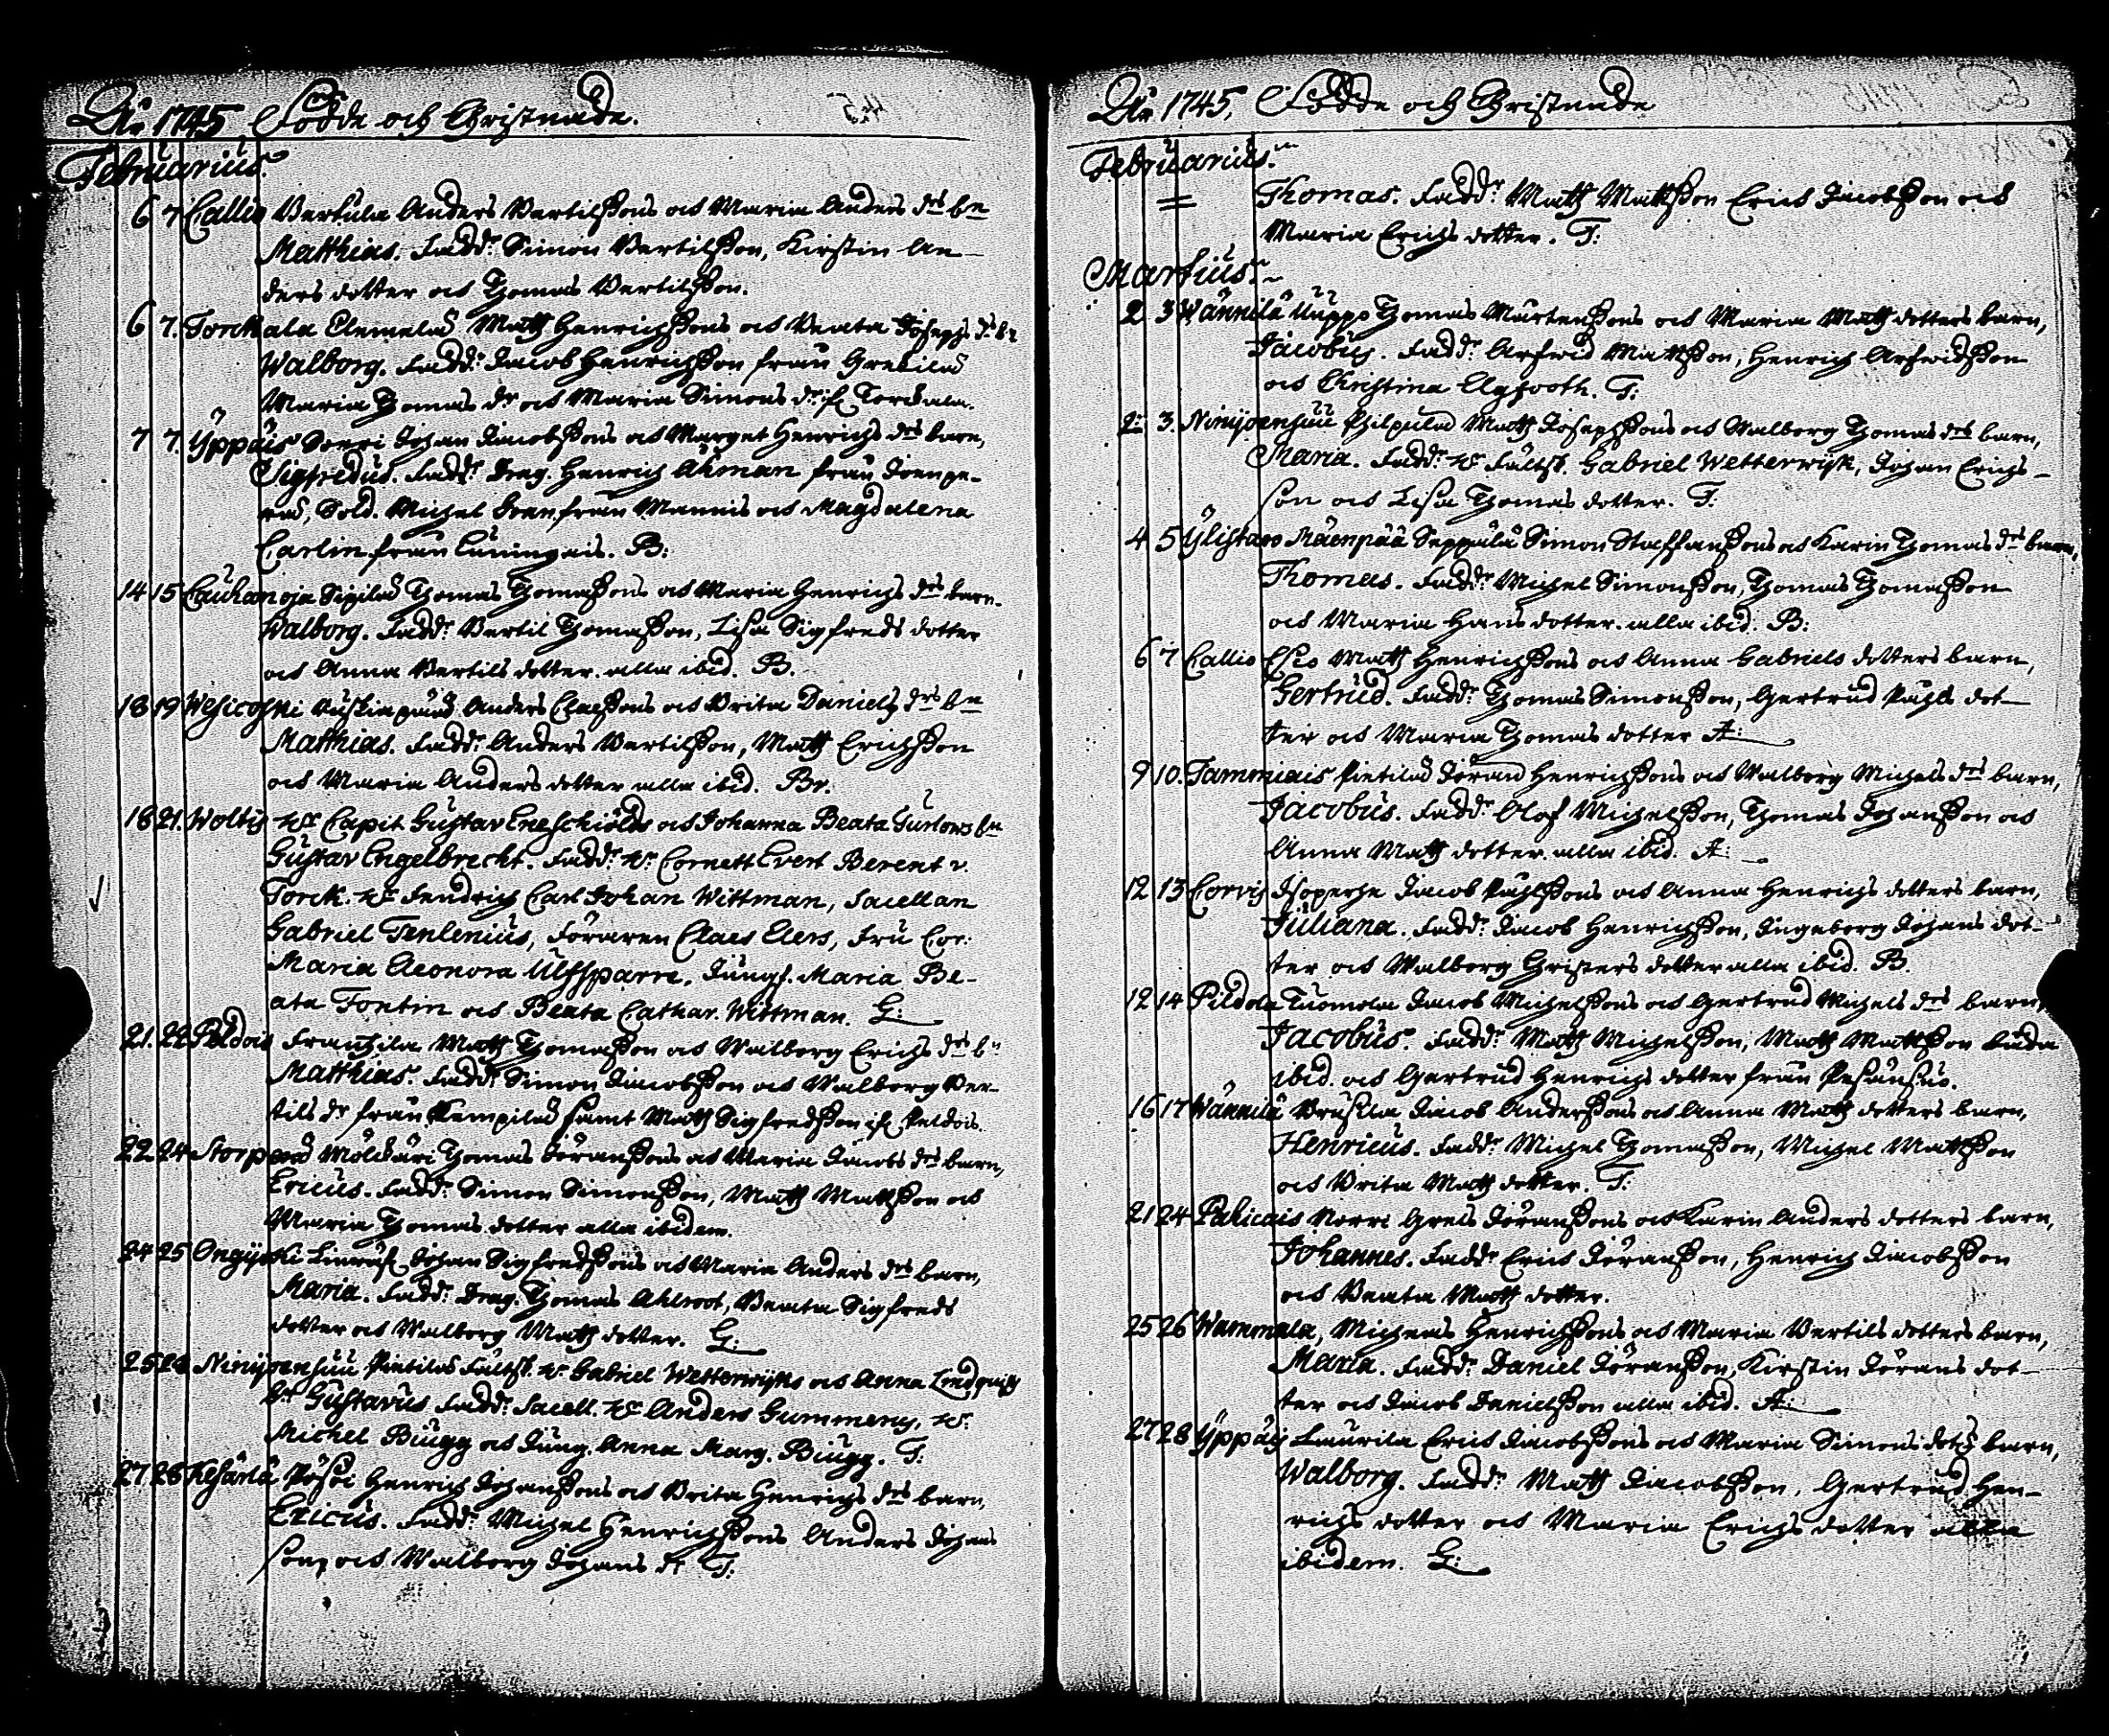 Åhr 1745, Födde och Christnade.
Februarius.
6 7 Callio Bertula Anders Bertilssons och Maria Anders drs bn
Matthias. Fadd: Simon Bertilsson, Kirstin An-
ders dotter och Thomas Bertilsson.
6 7. Torckala Clemelas Matts Henrichssons och Beata Josephs drs bn
Walborg. Fadd: Jacob Henrichsson från Grekilas
Maria Thomas dr och Maria Simons dr if. Torckala.
7 7. Yppäis Sorri Johan Jacobssons och Marget Henrichs drs barn,
Sigfridus. Fadd: Drag. Henrich Åkman från
Sold. Michel från Mannis och Magdalena
Carlin från Cuningais. B:
14 15 Cauhanoja Sipilas Thomas Thomassons och Maria Henrichs drs barn.
Walborg. Fadd: Bertil Thomasson, Lisa Sigfreds dotter
och Anna Bertils dotter alla ibid. B.
18 19 Wesicoski Anders Claessons och Brita Daniels drs bn
Matthias. Fadd: Anders Bertilsson, Matts Erichsson
och Maria Anders dotter alla ibid. Br.
18 21. Woltis Hr Capit Gustav Eneschiölds och Johanna Beata Gurlows bn
Gustav Engelbrecht. Fadd: Hr Cornett Evert Berent v.
Torck. Hr Fendrich Carl Johan Wittman, Sacellan
Gabriel Tenlenius, Föraren Claes Elers, Fru Cor:
Maria Eleonora Ulfsparre, Jungf. Maria Be-
ata Fontin och Beata Cathar. Wittman. G:
21. 22. Peldois Frantsila Matts Thomasson och Walborg Erichs drs bn
Matthias. Fadd: Simon Jacobsson och Walborg Ber-
tils dr från Kempilas samt Matts Sigfredsson if. Peldois.
22 24 Storpers Mölckäri Thomas Jöranssons och Maria Jacobs drs barn,
Ericus. Fadd: Simon Simonsson, Matts Mattsson och
Maria Thomas dotter alla ibidem.
24 25 Ongijoki Johan Sigfredssons och Maria Anders drs barn,
Maria. Fadd: Drag. Thomas Ahlroot, Beata Sigfreds
dotter och Walborg Matts dotter. G:
25 28 Ninijoensuu Pietilas Fältsk. Hr Gabriel Wetterwijks och Anna Lindquist
bn Gustavus Fadd: Sacell. Hr Anders Gummerus, Hr
Michel Biugg och Jung. Anna Marg. Biugg. T:
27 28 Kesärlä Pösoi Henrich Johanssons och Brita Henrichs drs barn,
Ericus. Fadd: Michel Henrichssons Anders Johans
son, och Walborg Johans dr T:
Åhr 1745, Födde och Christnade
Februarius.
Thomas. Fadd: Matts Mattsson Erich Jacobsson och
Maria Erichs dotter. T:
Martius.
2 3 Wännilä Uuppo Thomas Mårtenssons och Maria Matts dotters barn,
Jacobus. Fadd: Arfwid Mattsson, Henrich Arfwidsson
och Christina Elgfooth. T:
2 3. Ninijoensuu Philpulas Matts Josephssons och Walborg Thomas drs barn,
Maria. Fadd: Hr Fältsk. Gabriel Wetterwijk, Johan Erichs-
son och Lisa Thomas dotter. T:
4 5 Ylistaro Mäenpää Seppälä Simon Staffanssons och Karin Thomas drs barn,
Thomas. Fadd: Michel Simonsson, Thomas Thomasson
och Maria Hans dotter alla ibid. B:
6 7 Callio Esko Matts Henrichssons och Anna Gabriels dotters barn,
Gertrud. Fadd: Thomas Simonsson, Gertrud Påhls dot-
ter och Maria Thomas dotter A:
9 10. Tammiais Pietilas Jöran Henrichssons och Walborg Michels drs barn,
Jacobus. Fadd: Olof Michelsson, Thomas Johansson och
Anna Matts dotter alla ibid. A:
12 13 Corvis Isoperhe Jacob Påhlssons och Anna Henrichs dotters barn,
Juliana. Fadd: Jacob Henrichsson, Ingeborg Johans dot-
ter och Walborg Christers dotter alla ibid. B.
12 14 Pildola Tuomola Jacob Michelssons och Gertrud Michels drs barn,
Jacobus. Fadd: Matts Michelsson, Matts Mattsson båda
ibid. och Gertrud Henrichs dotter från Pesänsuo.
16 17 Wännilä Bruskila Jacob Anderssons och Anna Matts dotters barn,
Henricus. Fadd: Michel Thomasson, Michel Mattsson
och Brita Matts dotter. T:
21 24 Palicais Norri Grels Jöranssons och Karin Anders dotters barn,
Johannes. Fadd: Erich Jöransson, Henrich Jacobsson
och Beata Matts dotter.
25 26 Wammala, Michaens Henrichssons och Maria Bertils dotters barn,
Maria. Fadd: Daniel Jöransson, Kirstin Jörans dot-
ter och Jacob Danielsson alla ibid. A:
27 28 Yppäis Laurila Erich Jacobssons och Maria Simons dots barn,
Walborg. Fadd: Matts Jacobsson, Gertrud Hen-
richs dotter och Maria Erichs dotter alla
ibidem. G: